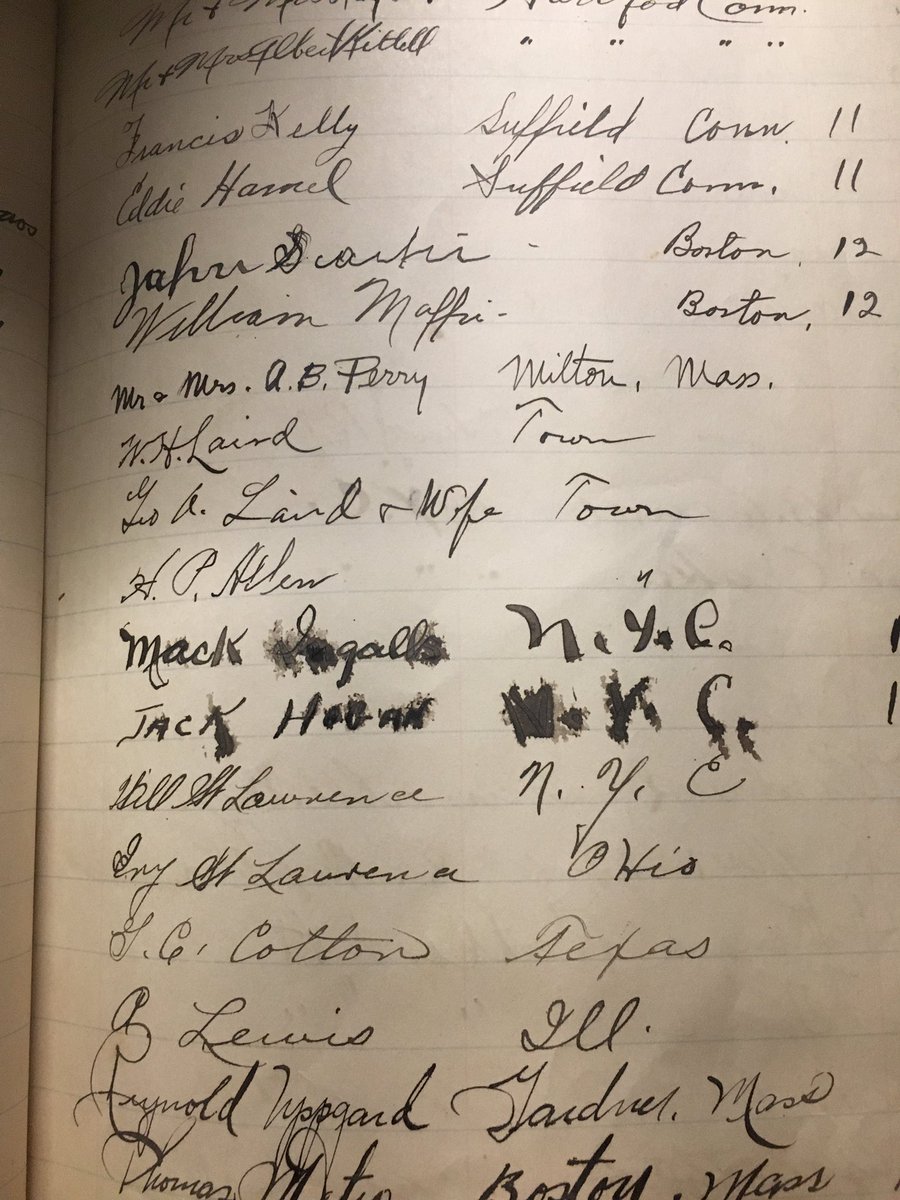 Mr + Mrs Conn.
Mr + Mrs Albert Kittell " " " "
Francis Kelly Suffield Conn. 11
Eddie Hamel Suffield Conn. 11
John Boston, 12
William Maffri - Boston, 12
Mr & Mrs. A. B. Perry Milton, Mass.
W. H. Laird Town
Geo A. Laird & Wife Town
H. P. Allen "
Mack Ingalls N. Y. C.
Jack Hogan N. Y. C.
Will St Lawrence N. Y. C
St Lawrence Ohio
Cotton Texas
Lewis Ill.
Reynold Gardner, Mass
Thomas Boston, Mass